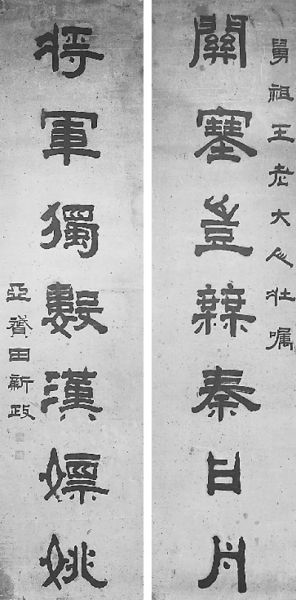 舅祖王老大人壯嘱
關塞豈無秦日月
將軍獨數漢嫖姚
亞田新政